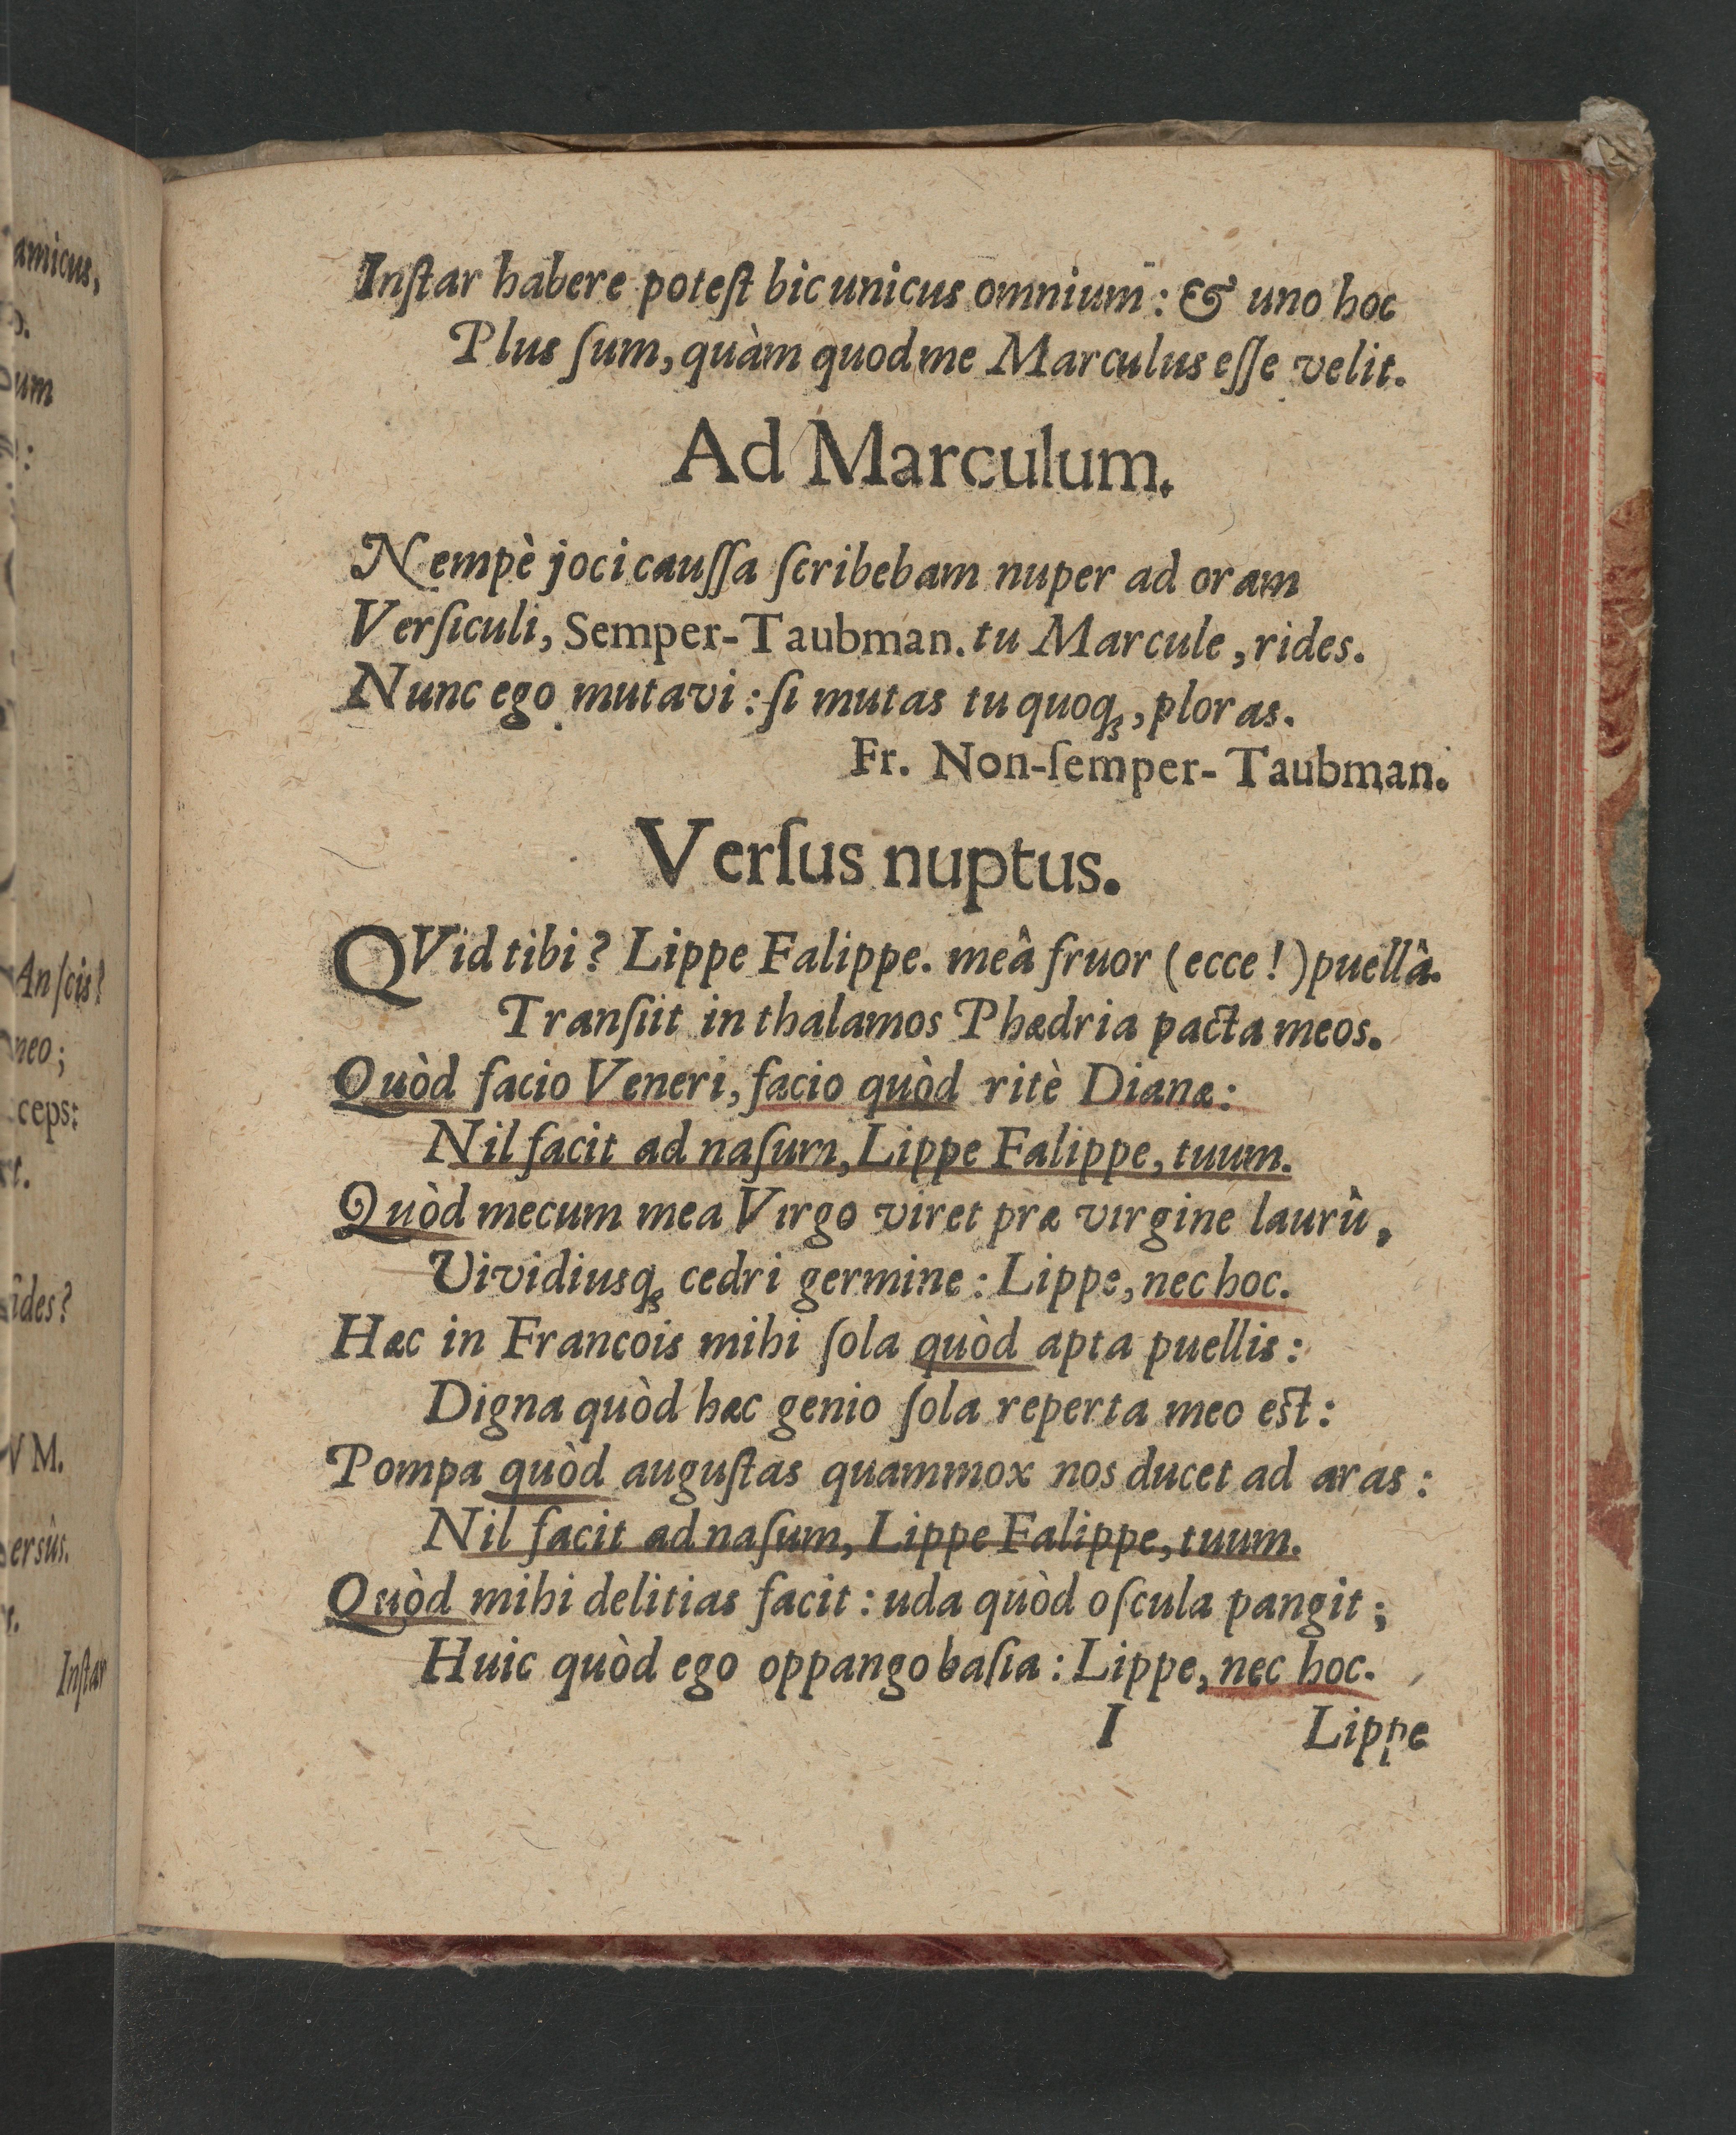 Inſtar habere poteſt hic unicus omnium: & uno hoc
Plus ſum, quàm quod me Marculus eſſe velit.
Ad Marculum.
Nempè joci cauſſa ſcribebam nuper ad oram
Verſiculi, Semper-Taubman. tu Marcule, rides.
Nunc ego mutavi: ſi mutas tu quoq;, ploras.
Fr. Non-ſemper-Taubman.
Verſus nuptus.
QVid tibi? Lippe Falippe. meâ fruor (ecce!) puellâ.
Tranſiit in thalamos Phædria pacta meos.
Quòd facio Veneri, facio quòd ritè Dianæ:
Nil facit ad naſum, Lippe Falippe, tuum.
Quòd mecum mea Virgo viret præ virgine laurû,
Vividiusq; cedri germine: Lippe, nec hoc.
Hæc in Francois mihi ſola quòd apta puellis:
Digna quòd hæc genio ſola reperta meo eſt:
Pompa quòd auguſtas quammox nos ducet ad aras:
Nil facit ad naſum, Lippe Falippe, tuum.
Quòd mihi delitias facit: uda quòd oſcula pangit;
Huic quòd ego oppango baſia: Lippe, nec hoc.
I Lippe
amicus,
um
An ſcis?
neo;
ceps:
ides?
VM.
ersûs.
Inſtar